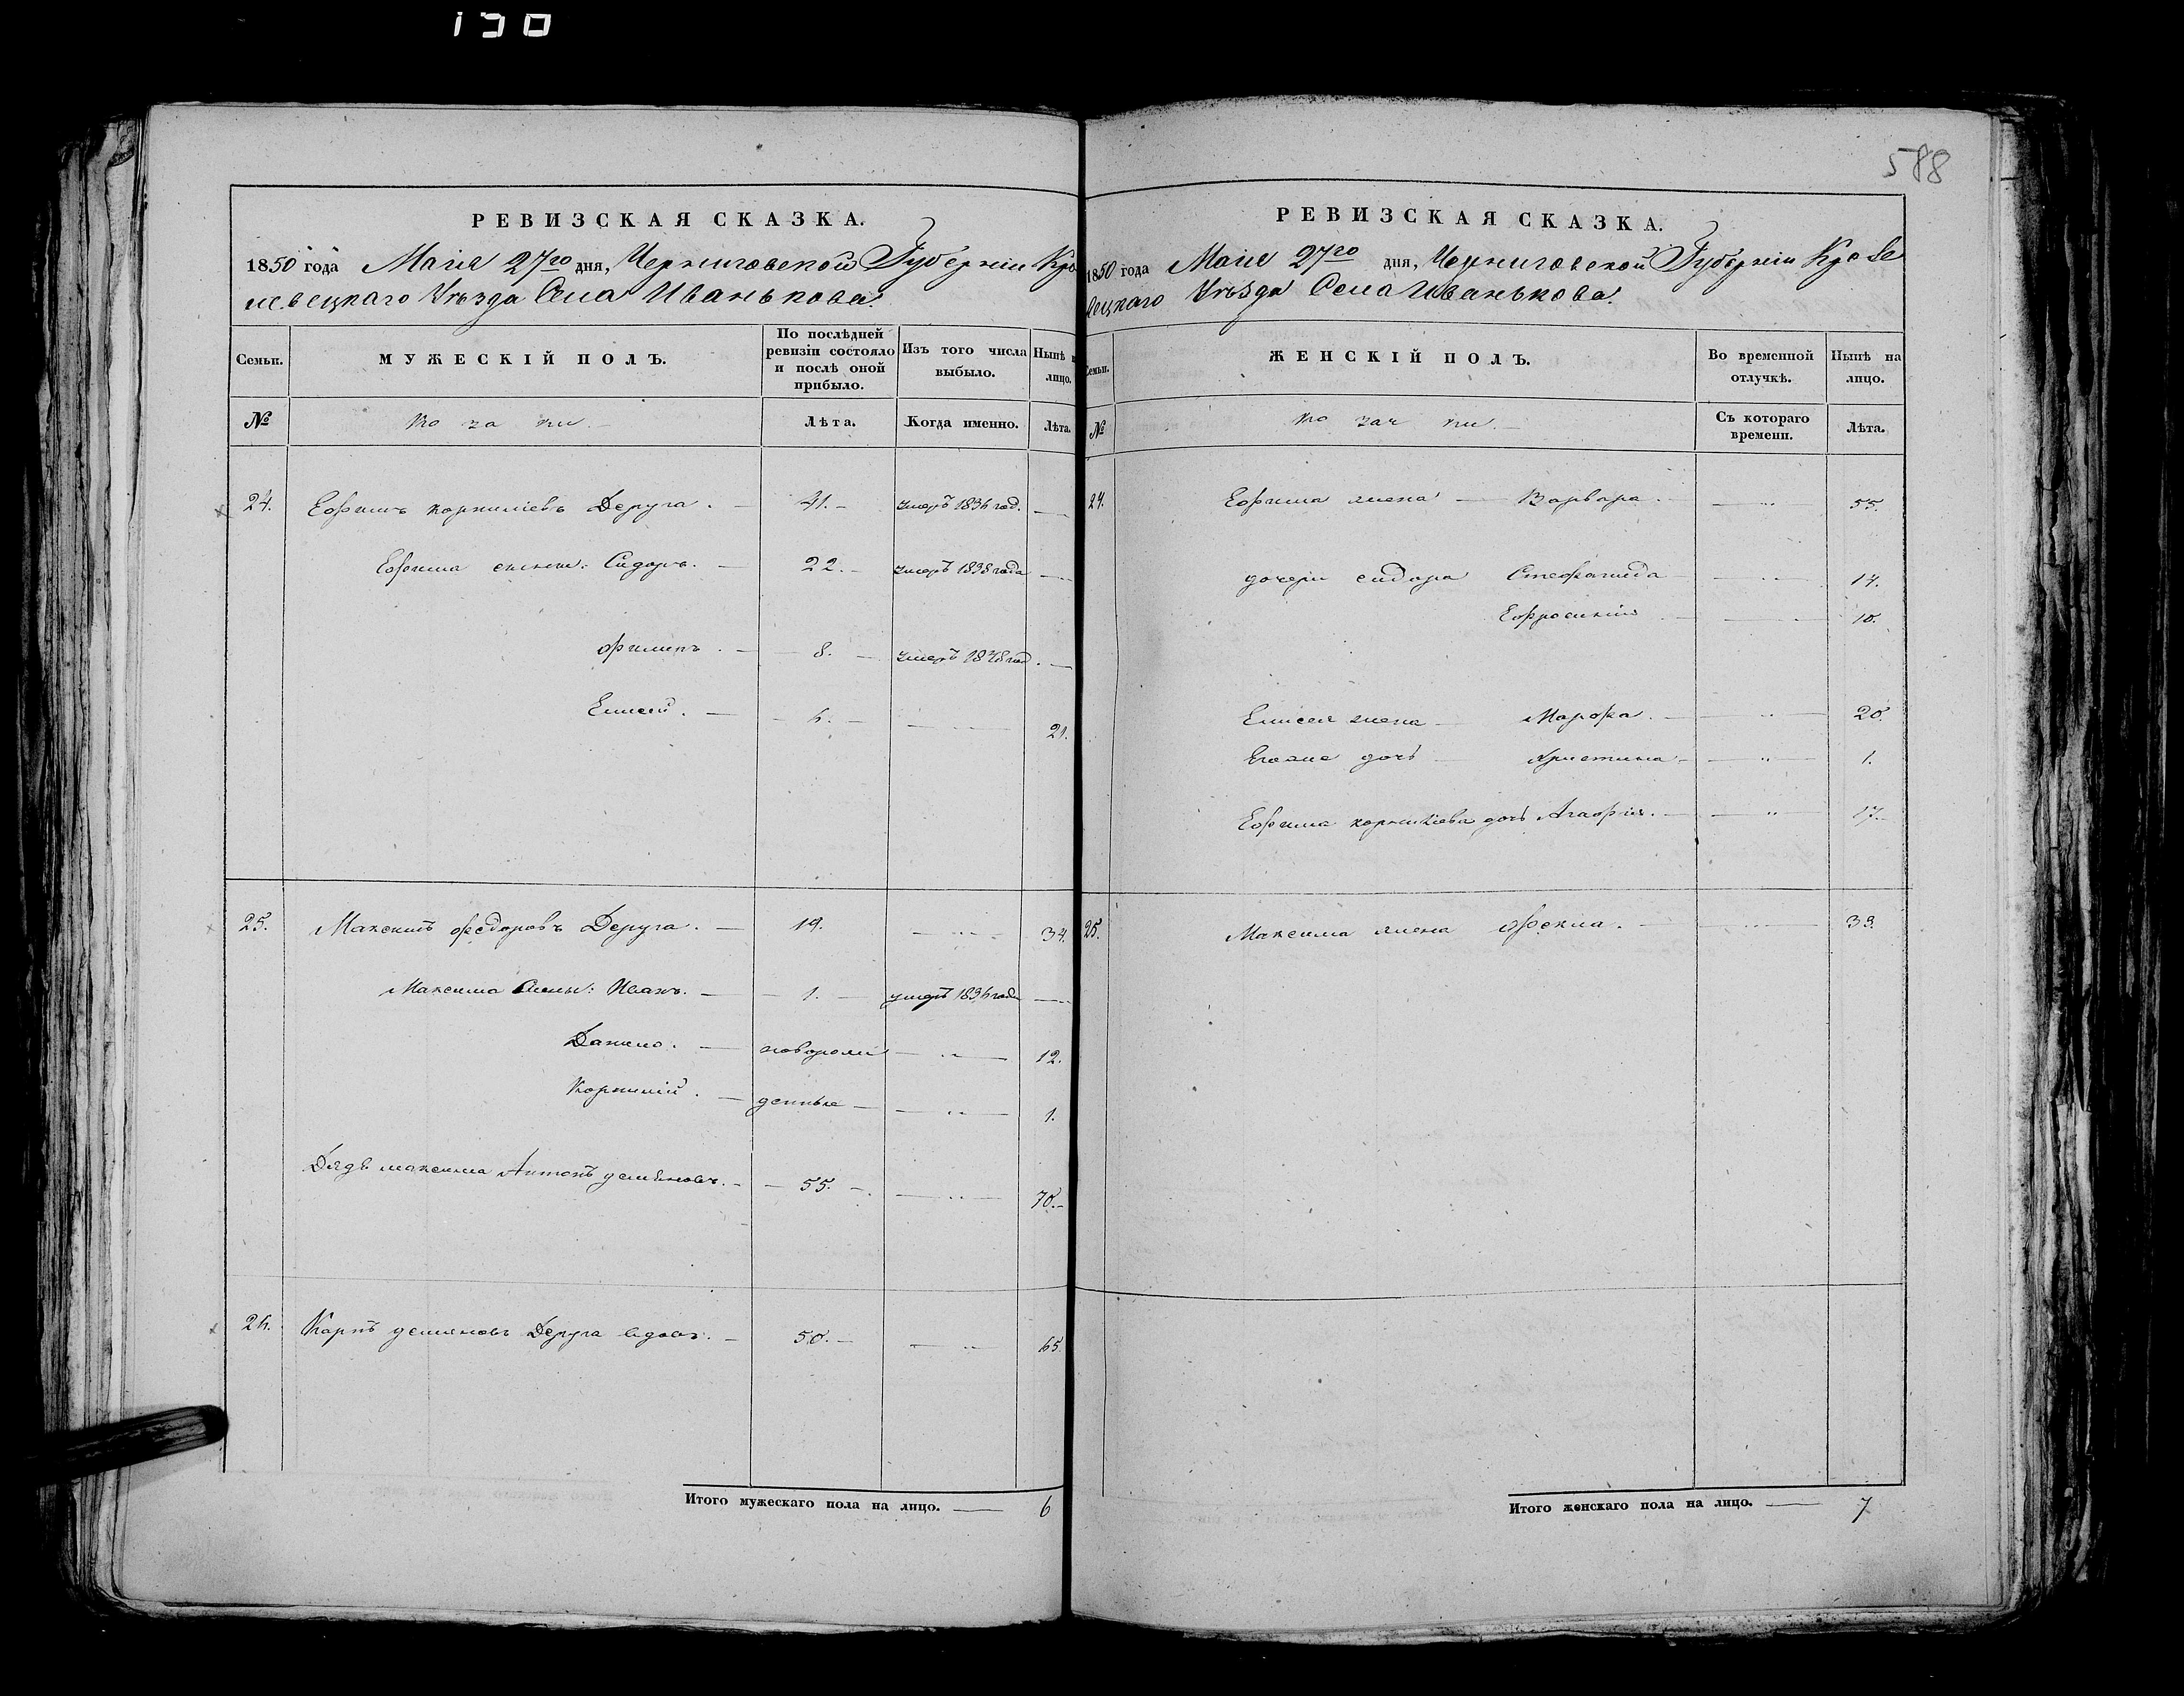 130
588
РЕВИЗСКАЯ СКАЗКА.
1850 года Маія 27го дня, Черниговской Губерніи Кро
левецкаго Уѣзда Села Иванькова.
Семьи. МУЖЕСКІЙ ПОЛЪ. По послѣдней ревизіи состояло и послѣ оной прибыло. Изъ того числа выбыло. Нынѣ на лицо.
№ Козаки. Лѣта. Когда именно. Лѣта.
24. Ефимъ Корниліевъ Деруга. 41. умеръ 1836 год.
Ефима сыны: Сидоръ. 22. умеръ 1838 года
Филипъ. 8. умеръ 1848 год.
Елисей. 6. 21.
25. Максимъ Федоровъ Деруга. 19. 34.
Максима Сыны: Иванъ. 1. умеръ 1836 года
Данило. новорож 12.
Корнилій. денные 1.
Дядя максима Антонъ демяновъ. 55. 70.
26. Карпъ демяновъ Деруга вдовъ. 50. 65.
Итого мужескаго пола на лицо. 6
РЕВИЗСКАЯ СКАЗКА.
1850 года Маія 27го дня, Черниговской Губерніи Кроле
вецкаго Уѣзда Села Иванькова.
Семьи. ЖЕНСКІЙ ПОЛЪ. Во временной отлучкѣ. Нынѣ на лицо.
№ Козачки. Съ котораго времени. Лѣта.
24. Ефима жена Варвара. 55.
дочери сидора Стефанида 14.
Ефросинія 10.
Елисея жена Марфа. 20.
Егоже дочь Христина 1.
Ефима корниліева дочь Агафія. 17.
25. Максима жена Фекла. 33.
Итого женскаго пола на лицо. 7